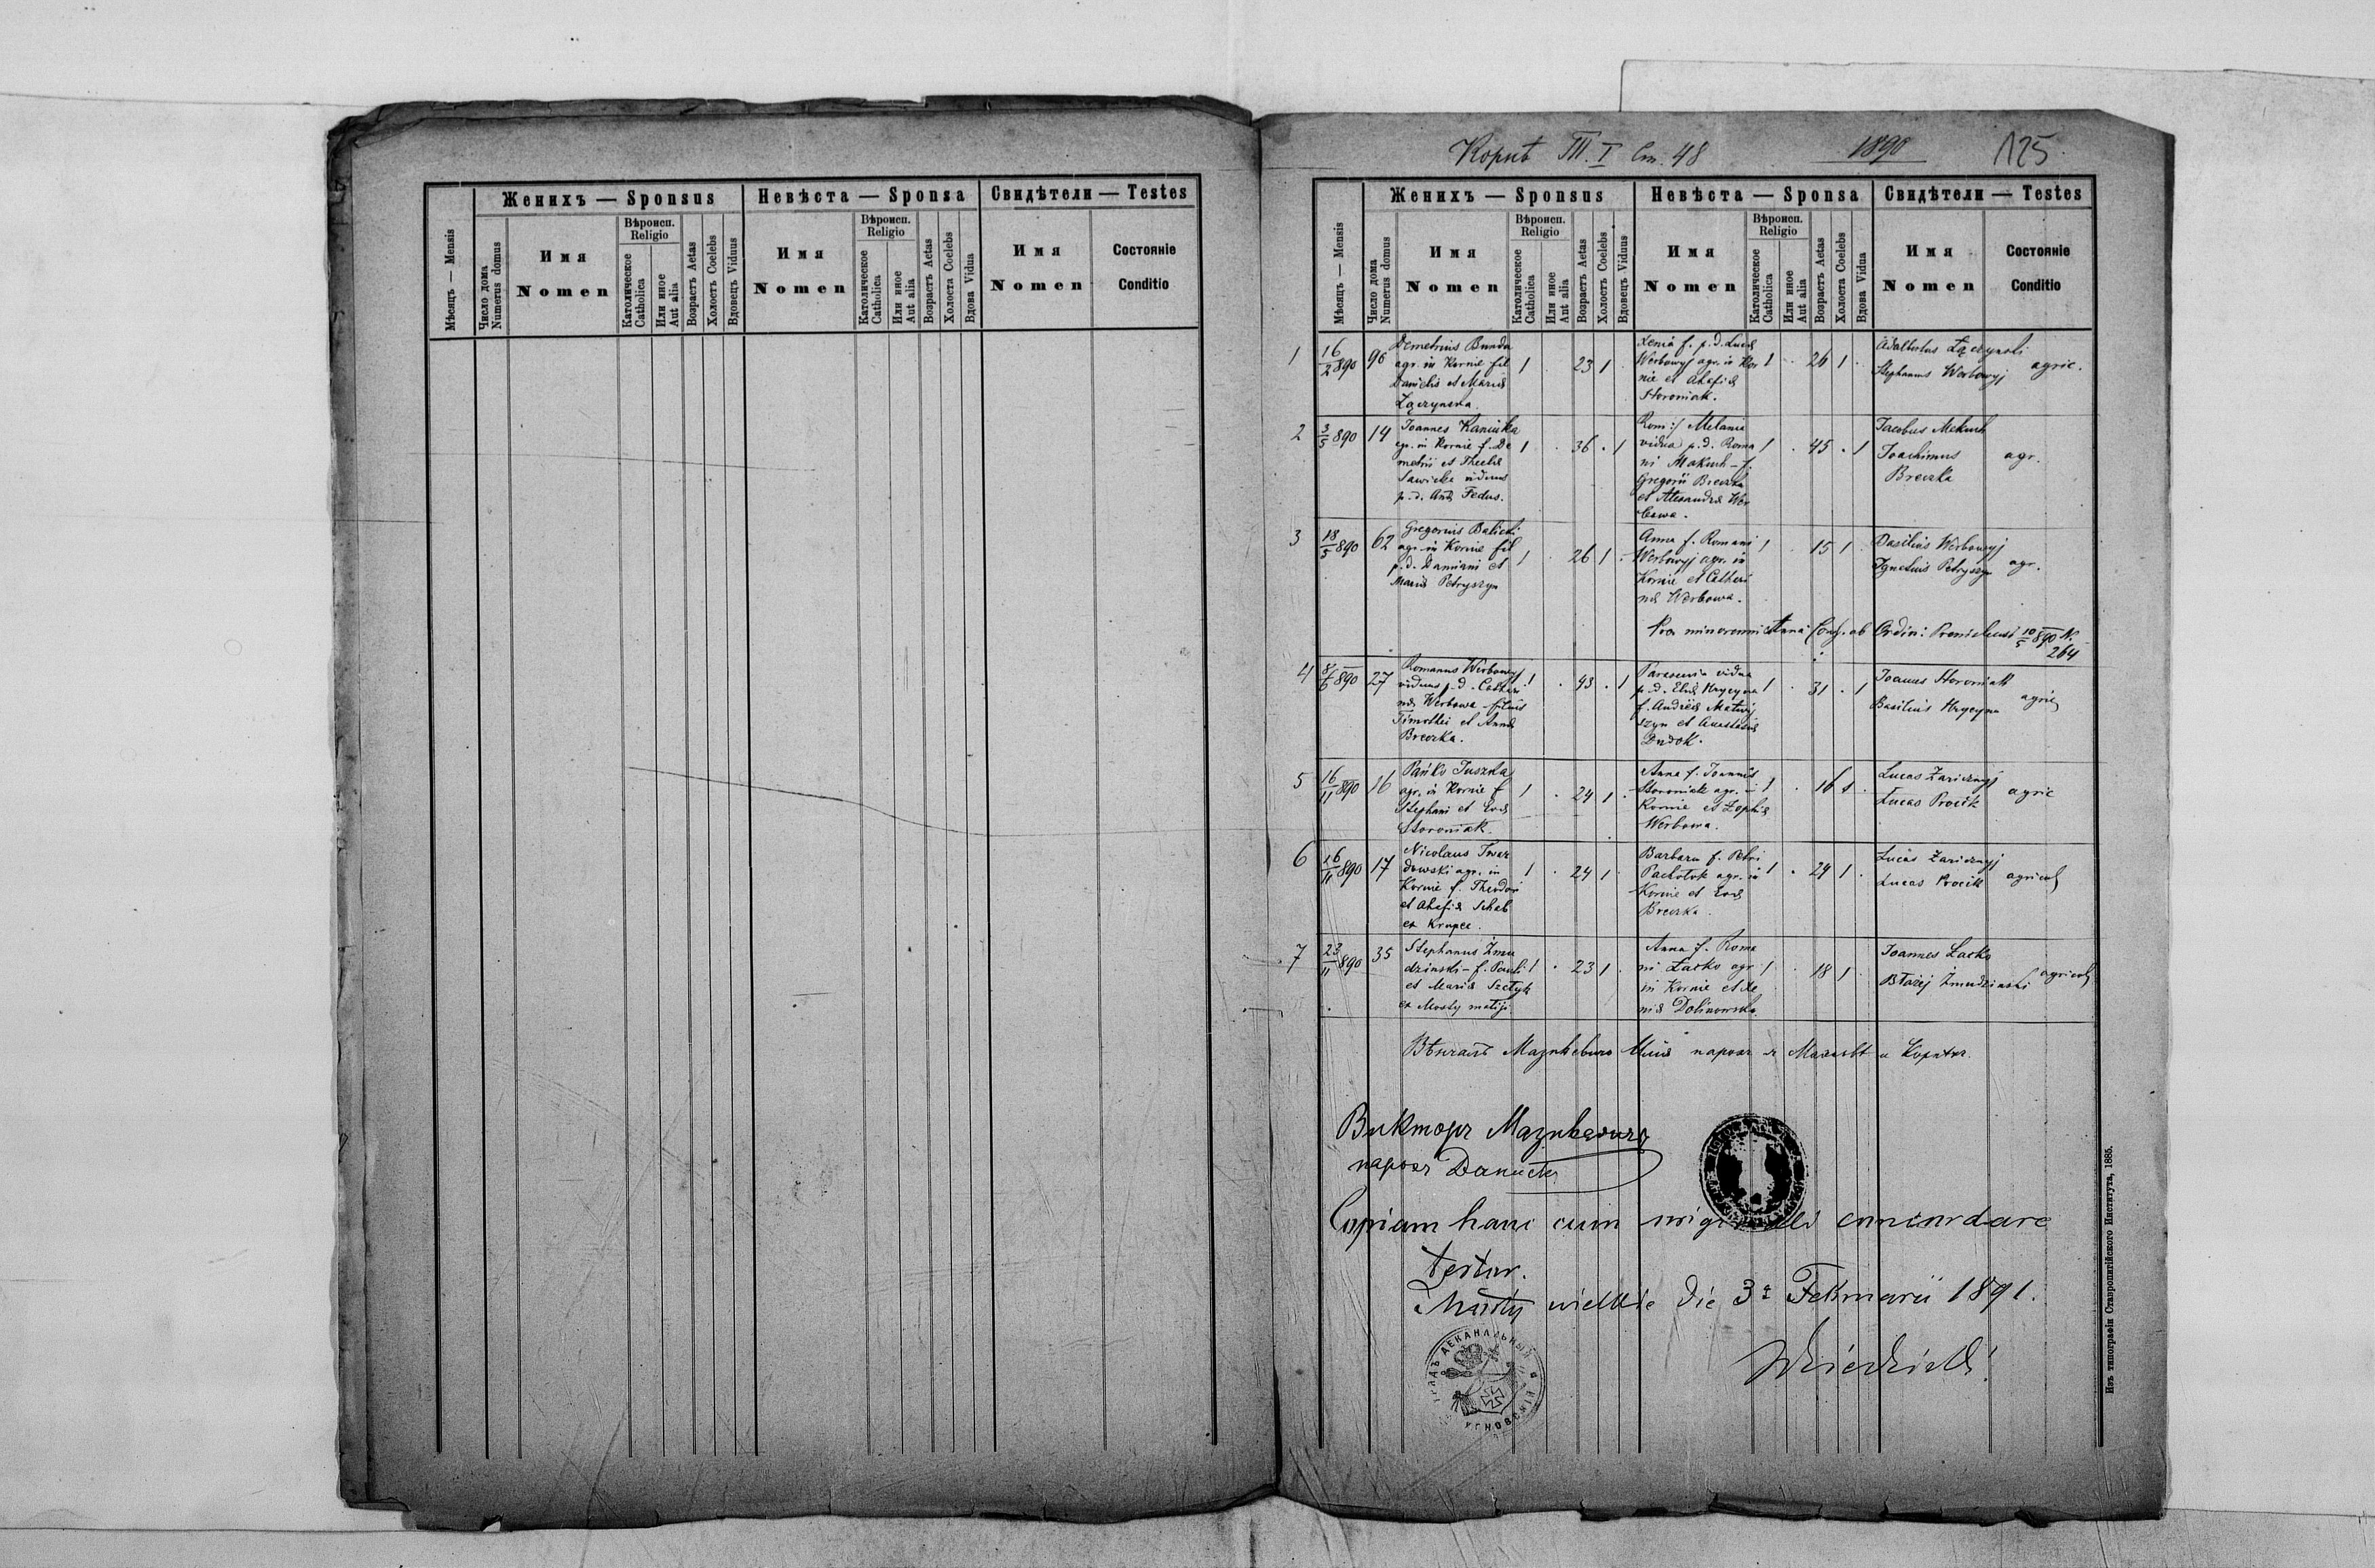 Женихъ — Sponsus
Невѣста — Sponsa
Свидѣтели — Testes
Мѣсяцъ — Mensis
Число дома
Numerus domus
Имя
Nomen
Вѣроисп.
Religio
Католическое
Catholica
Или иное
Aut alia
Возрастъ Aetas
Холостъ Coelebs
Вдовецъ Viduus
Имя
Nomen
Вѣроисп.
Religio
Католическое
Catholica
Или иное
Aut alia
Возрастъ Aetas
Холоста Coelebs
Вдова Vidua
Имя
Nomen
Состояніе
Conditio
Корнѣ Т. I Ст. 48
1890
125
Женихъ — Sponsus
Невѣста — Sponsa
Свидѣтели — Testes
Мѣсяцъ — Mensis
Число дома
Numerus domus
Имя
Nomen
Вѣроисп.
Religio
Католическое
Catholica
Или иное
Aut alia
Возрастъ Aetas
Холостъ Coelebs
Вдовецъ Viduus
Имя
Nomen
Вѣроисп.
Religio
Католическое
Catholica
Или иное
Aut alia
Возрастъ Aetas
Холоста Coelebs
Вдова Vidua
Имя
Nomen
Состояніе
Conditio
1
16/2 890
96
Demetrius Bunda
agr. in Kornie fil
Danielis et Mariæ
Łączynska
1 23 1
Xenia f. p. d. Lucæ
Werbowyj agr. in Kor
nie et Ahafiæ
Storoniak.
1 26 1
Adalbertus Łączynski
Stephanus Werbowyj
agric.
2
3/5 890
14
Joannes Kaminka
agr. in Kornie f. De
metrii et Theclæ
Sawicka viduus
p. d. Annæ Fedus.
1 36 1
Rom:/ Melania
vidua p. d. Roma
ni Makuch - f.
Gregorii Breczka
et Alexandræ Wer
bowa.
1 45 1
Jacobus Makuch
Joachimus
Breczka
agr.
3
18/5 890
62
Gregorius Balicki
agr. in Kornie fil
p. d. Damiani et
Mariæ Petryszyn
1 26 1
Anna f. Romani
Werbowyj agr. in
Kornie et Catheri
næ Werbowa.
1 15 1
Basilius Werbowyj
Ignatius Petryszyn
agr.
Pro minorenni Anna Cons. ab Ordin: 10/5 890 N.
264
4
8/6 890
27
Romanus Werbowyj
viduus p. d. Catheri
næ Werbowa - filius
Timothei et Annæ
Breczka.
1 43 1
Parascevia vidua
p. d. Eliæ Hrycyna
f. Andreæ Matwij
szyn et Anastasiæ
Dudok.
1 31 1
Joannes Storoniak
Basilius Hrycyna
agric
5
16/11 890
16
Pańko Juszka
agr. in Kornie f
Stephani et Evæ
Storoniak.
1 24 1
Anna f. Joannis
Storoniak agr. in
Kornie et Zophiæ
Werbowa.
1 16 1
Lucas Zaricznyj
Lucas Procik
agric
6
16/11 890
17
Nicolaus Twar
dowski agr. in
Kornie f. Theodori
et Ahafiæ Schab
ex Krupec.
1 24 1
Barbara f. Petri
Pacholok agr. in
Kornie et Evæ
Breczka.
1 24 1
Lucas Zaricznyj
Lucas Procik
agricol
7
23/11 890
35
Stephanus Żmu
dzinski - f. Pauli
et Mariæ Szczyk
ex Mosty małyji
1 23 1
Anna f. Roma
ni Łacko agr.
in Kornie et Xe
niæ Dolinowska.
1 18 1
Joannes Łacko
Błażej Żmudzinski
agricol
Вѣнчалъ
Викторъ Мазикевичъ
парохъ
Copiam hanc cum originali concordare
testor.
Mosty wielkie die 3a Februarii 1891.
Изъ типографіи Ставропигійского Института, 1885.